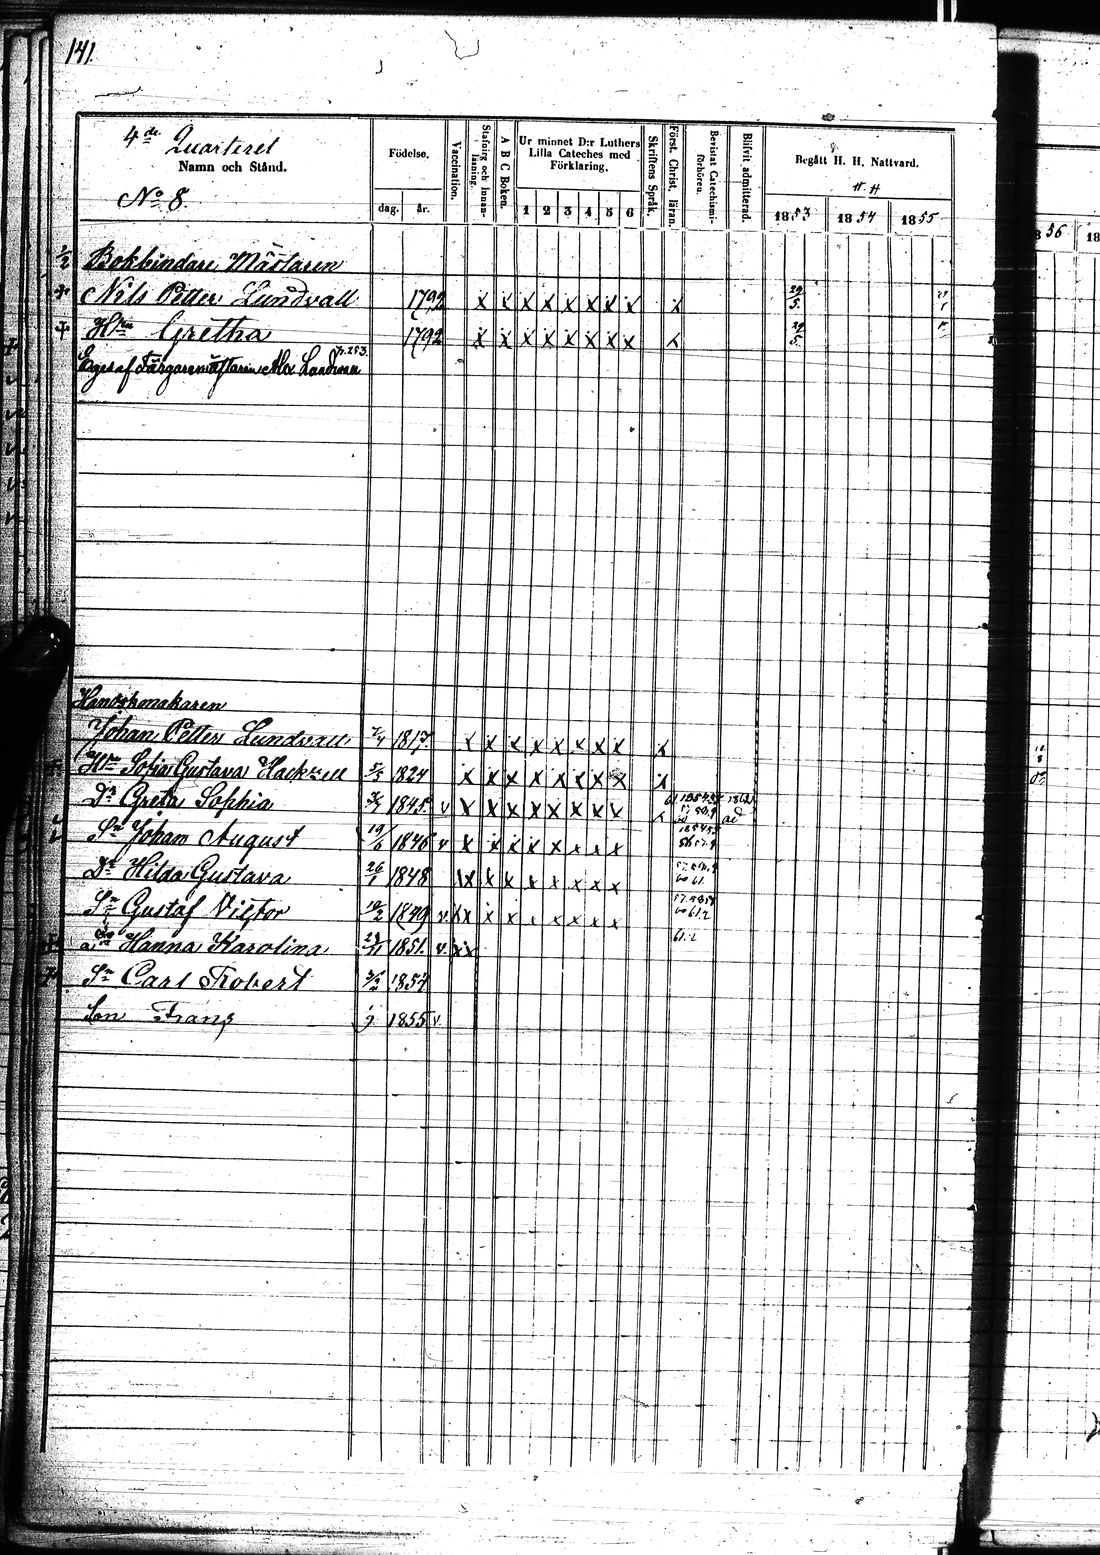 141.
4de Quarteret
Namn och Stånd.
No 8.
Födelse.
dag. år.
Vaccination.
Stafning och Innanläsning.
A B C Boken.
Ur minnet D:r Luthers Lilla Cateches med Förklaring.
1 2 3 4 5 6
Skriftens Språk.
Först. Christ. läran.
Bevistat Catechismiförhören.
Blifvit admitterad.
Begått H. H. Nattvard.
1853 1854 1855
Bokbindare Mästaren
Nils Petter Lundvall 1792 x x x x x x x x x 29/5
Hru Gretha 1792 x x x x x x x x x 29/5
Eges af Färgaremästarin p. 253.
Handskmakaren
Johan Petter Lundvall 1817 x x x x x x x x x
Hru Sofia Gustava Hackzell 5/5 1824 x x x x x x x x x
Dr Greta Sophia 1845. v x x x x x x x x x
Sn Johan August 19/6 1846 v x x x x x x x x
Dr Hilda Gustava 26/1 1848 x x x x x x x x
Sn Gustaf Victor 19/2 1849 v x x x x x x x x
Hanna Karolina 1851. v. x x
61.2
Sn Carl Robert 1854
Son Frans 1855 v.